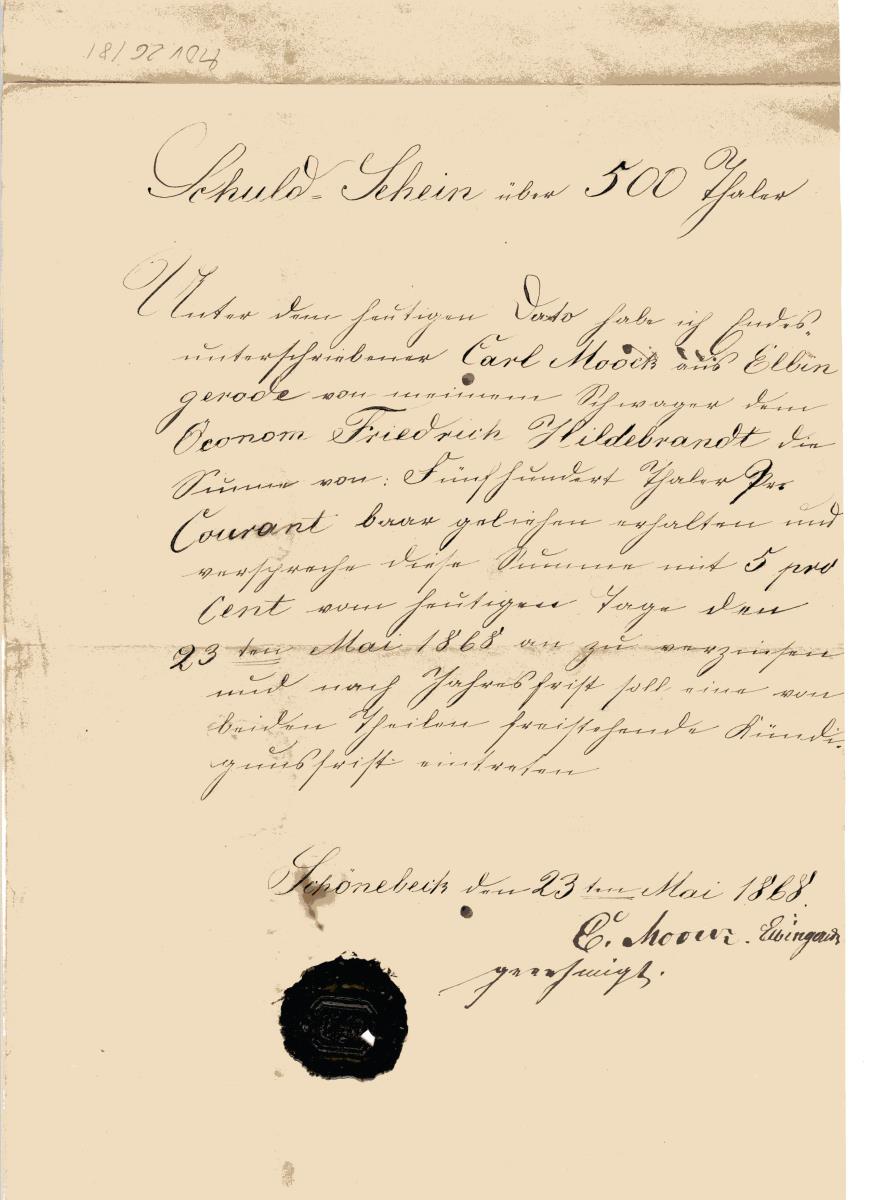 HDV 26/81
Schuld-Schein über 500 Thaler
Unter dem heutigen Dato habe ich Endes-
unterschriebener Carl Moock aus Elbin
gerode von meinem Schwager dem
Oeconom Friedrich Hildebrandt die
Summe von: Fünfhundert Thaler Pr.
Courant baar geliehen erhalten und
verspreche diese Summe mit 5 pro
Cent vom heutigen Tage den
23ten Mai 1868 an zu verzinsen
und nach Jahresfrist soll eine von
beiden Theilen freistehende Kündi-
gunsfrist eintreten
Schönebeck den 23ten Mai 1868.
C. Moock. Elbingerode
genehmigt.